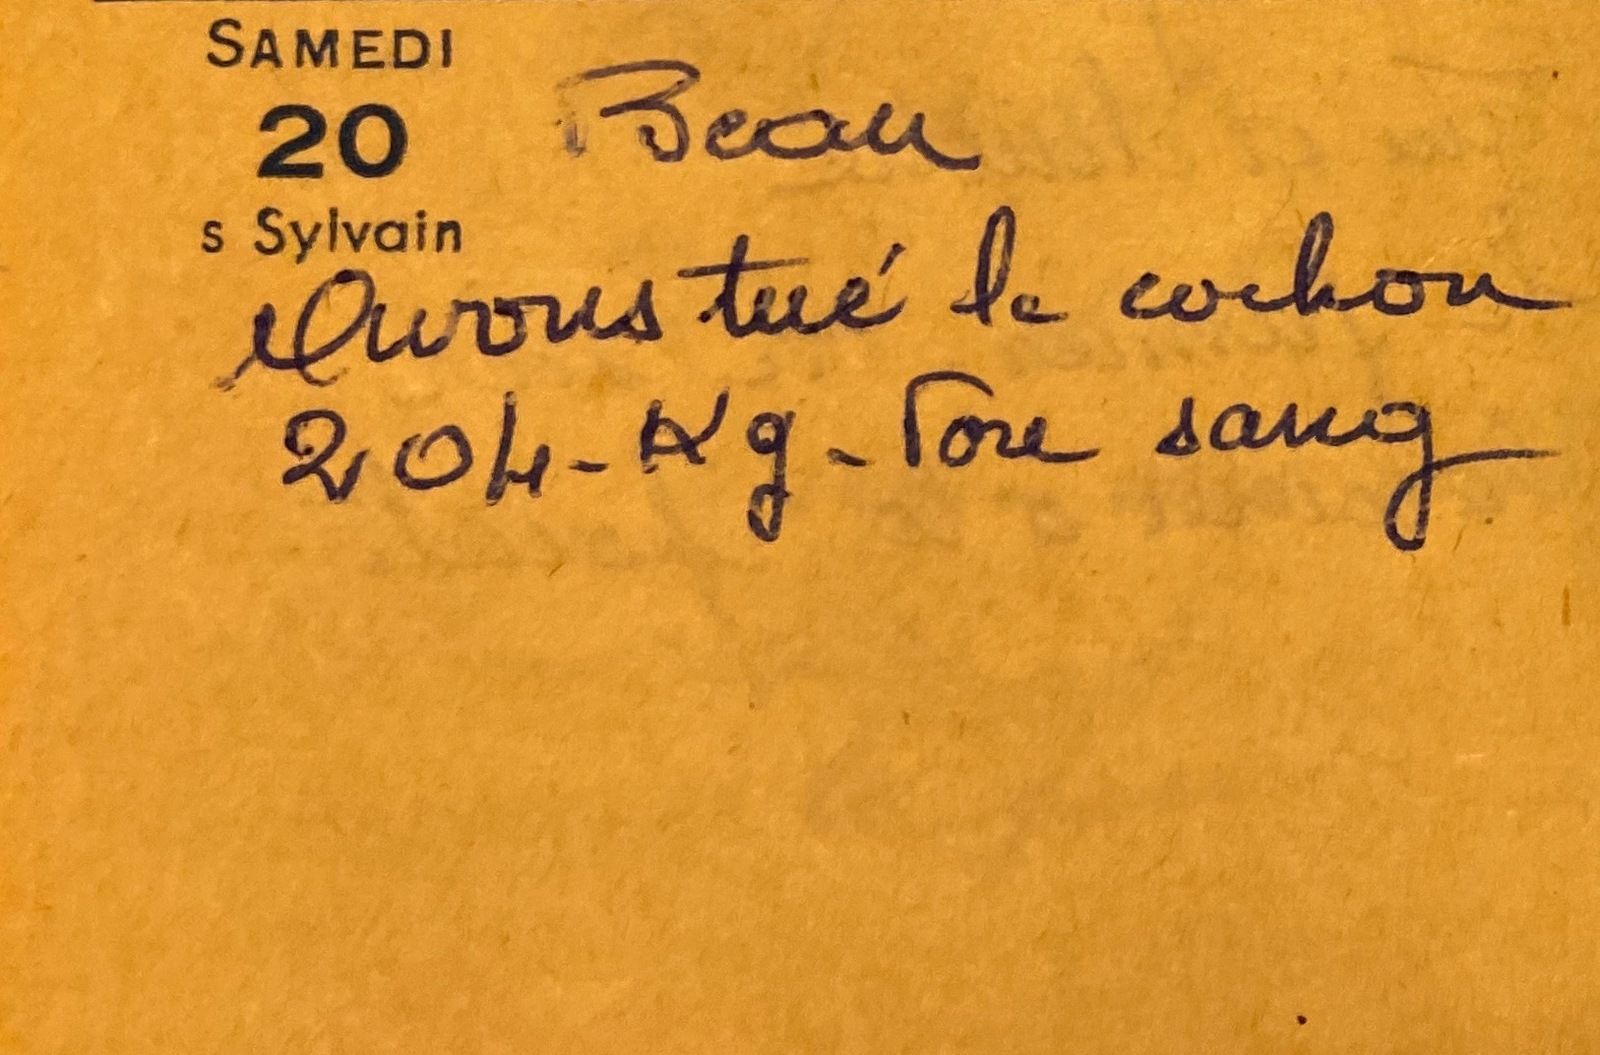 SAMEDI
20 Beau
s Sylvain
Avons tué le cochon
204 - Kg - sang